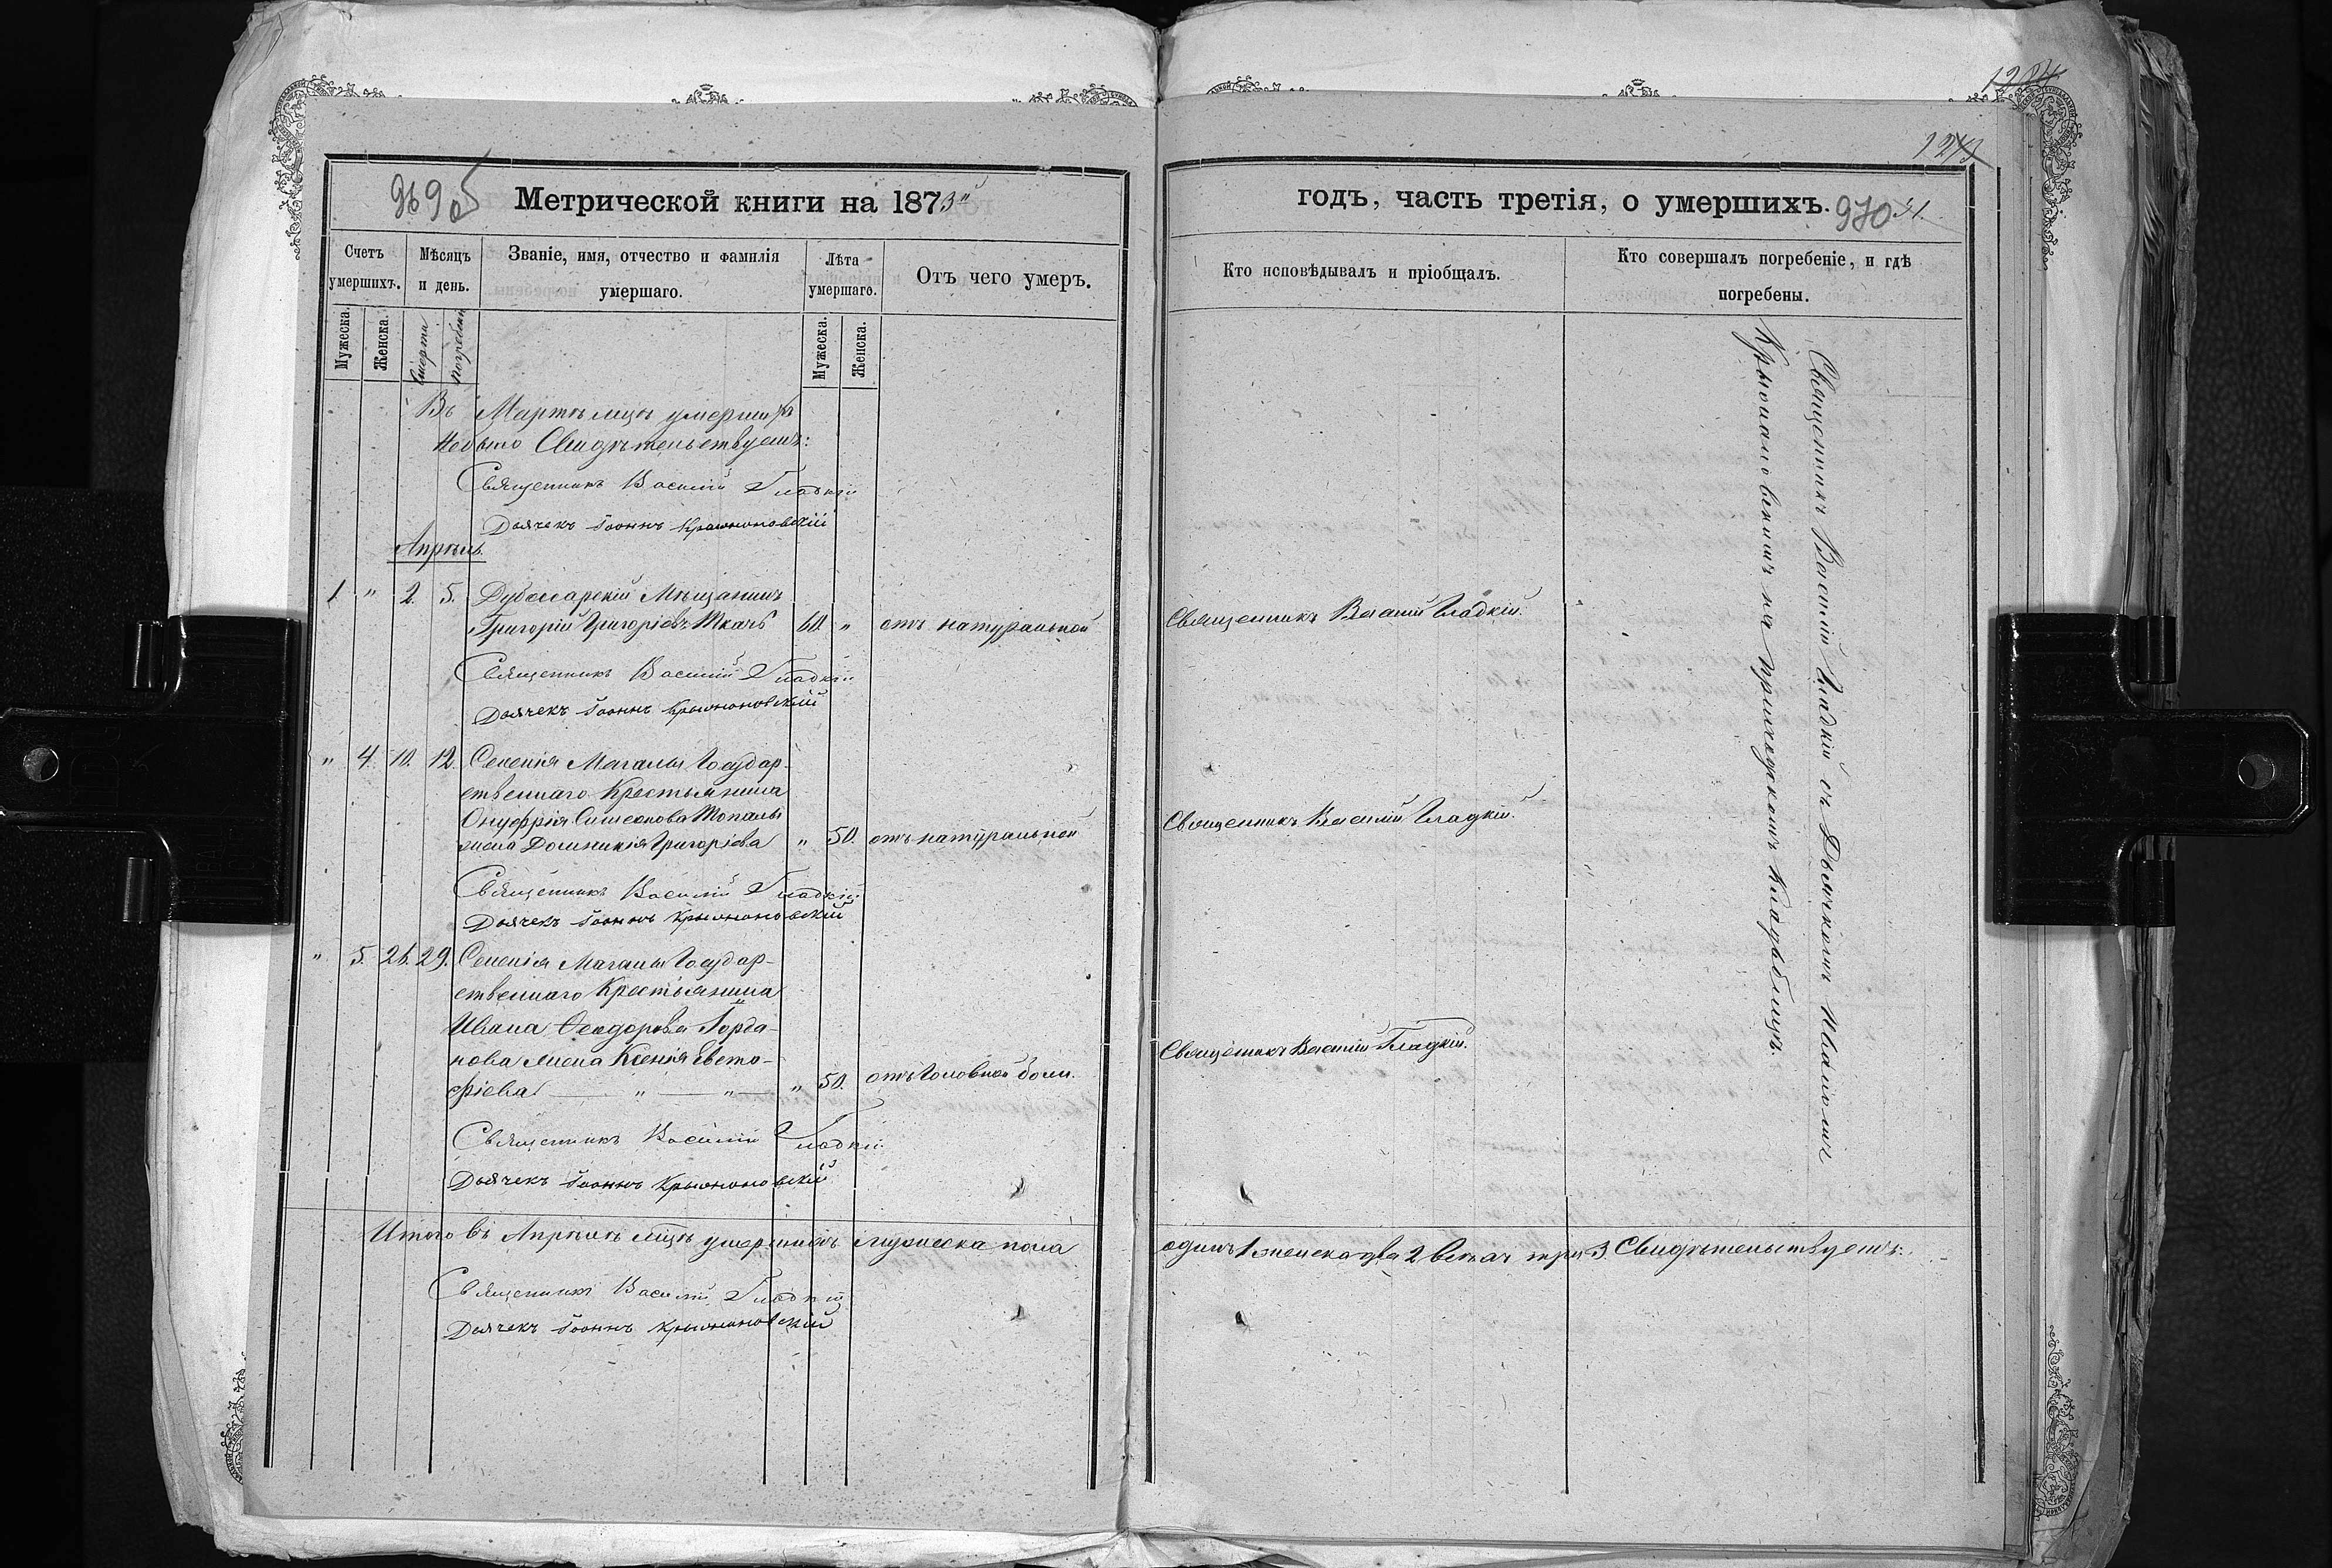 1284
1243
969 об
Метрической книги на 1873й
годъ, часть третія, о умершихъ.
970
51.
Счетъ умершихъ.
Мѣсяцъ и день.
Званіе, имя, отчество и фамилія умершаго.
Лѣта умершаго.
Отъ чего умеръ.
Кто исповѣдывалъ и пріобщалъ.
Кто совершалъ погребеніе, и гдѣ погребены.
Мужеска.
Женска.
Смерти
погребенія
Мужеска.
Женска.
Въ Мартѣ мцѣ умершихъ
небыло Свидѣтельствуемъ:
Священникъ Василій Гладкій
Дьячекъ Іоаннъ Крыжановскій
Апрѣль.
1 " 2. 5. Дубоссарскій Мѣщанинъ
Григорій Григоріевъ Ткачъ 60. " отъ натуральной
Священникъ Василій Гладкій.
Священникъ Василій Гладкій
Дьячекъ Іоаннъ Крыжановскій
" 4. 10. 12. Селенія Магалы Государ-
ственнаго Крестьянина
Онуфрія Симеонова Топалы
жена Доминикія Григоріева " 50. отъ натуральной
Священникъ Василій Гладкій.
Священникъ Василій Гладкій
Дьячекъ Іоаннъ Крыжановскій
" 5. 26. 29. Селенія Магалы Государ-
ственнаго Крестьянина
Ивана Ѳеодорова Іорда-
нова жена Ксенія Евста-
фіева " " " 50. отъ головной боли.
Священникъ Василій Гладкій.
Священникъ Василій Гладкій
Дьячекъ Іоаннъ Крыжановскій
Священникъ Василій Гладкій съ Дьячкомъ Іваномъ
Крыжановскимъ на приходскомъ кладьбищѣ.
Итого въ Апрѣлѣ мцѣ умершихъ мужеска пола
одинъ 1 женска два 2 всѣхъ три 3. Свидѣтельствуемъ:
Священникъ Василій Гладкій
Дьячекъ Іоаннъ Крыжановскій